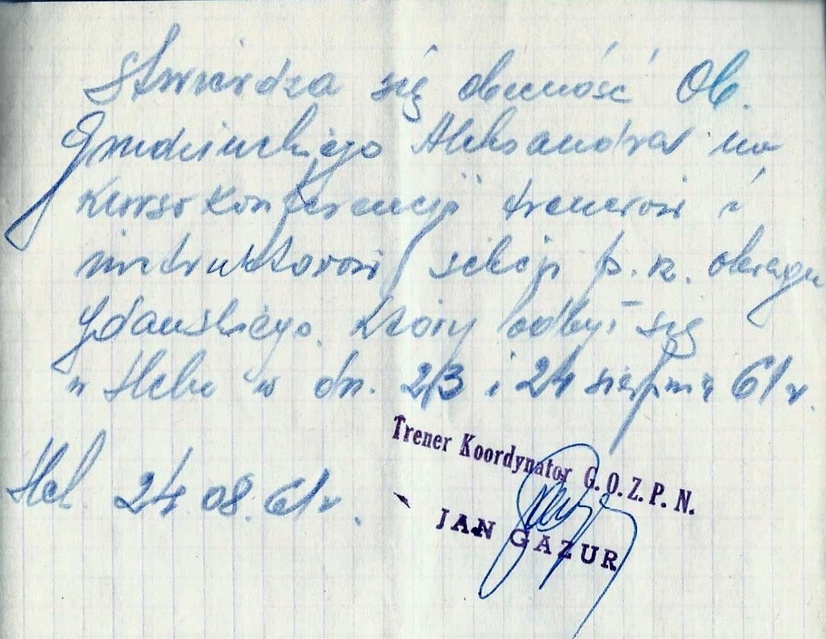 Stwierdza się obecność Ob.
Grudzińskiego Aleksandra na
kurso konferencji trenerów i
instruktorów sekcji p. n. okręgu
gdańskiego, który odbył się
w Helu w dn. 23 i 24 sierpnia 61 r.
Hel 24 08. 61 r.
Trener Koordynator G.O.Z.P.N.
JAN GAZUR